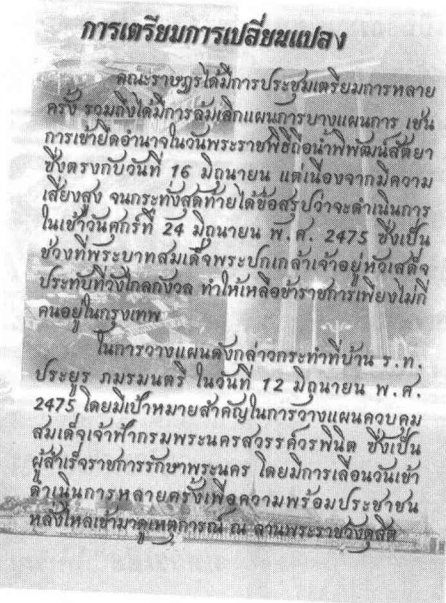 การเตรียมการเปลี่ยนแปลง
คณะราษฎรได้มีการประชุมเตรียมการหลาย
ครั้ง รวมถึงได้มีการล้มเลิกแผนการบางแผนการ เช่น
การเข้ายึดอำนาจในวันพระราชพิธีถือน้ำพิพัฒน์สัตยา
ซึ่งตรงกับวันที่ 16 มิถุนายน แต่เนื่องจากมีความ
เสี่ยงสูง จนกระทั่งสุดท้ายได้ข้อสรุปว่าจะดำเนินการ
ในเช้าวันศุกร์ที่ 24 มิถุนายน พ.ศ. 2475 ซึ่งเป็น
ช่วงที่พระบาทสมเด็จพระปกเกล้าเจ้าอยู่หัวเสด็จ
ประทับที่วังไกลกังวล ทำให้เหลือข้าราชการเพียงไม่กี่
คนอยู่ในกรุงเทพ
ในการวางแผนดังกล่าวกระทำที่บ้าน ร.ท.
ประยูร ภมรมนตรี ในวันที่ 12 มิถุนายน พ.ศ.
2475 โดยมีเป้าหมายสำคัญในการวางแผนควบคุม
สมเด็จเจ้าฟ้ากรมพระนครสวรรค์วรพินิต ซึ่งเป็น
ผู้สำเร็จราชการรักษาพระนคร โดยมีการเลื่อนวันเข้า
ดำเนินการหลายครั้งเพื่อความพร้อมประชาชน
หลั่งไหลเข้ามาดูเหตุการณ์ ณ ลานพระราชวังดุสิต